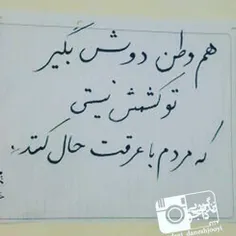 هم وطن دوش بگیر
تو کشمش نیستی
که مردم با عرقت حال کنند